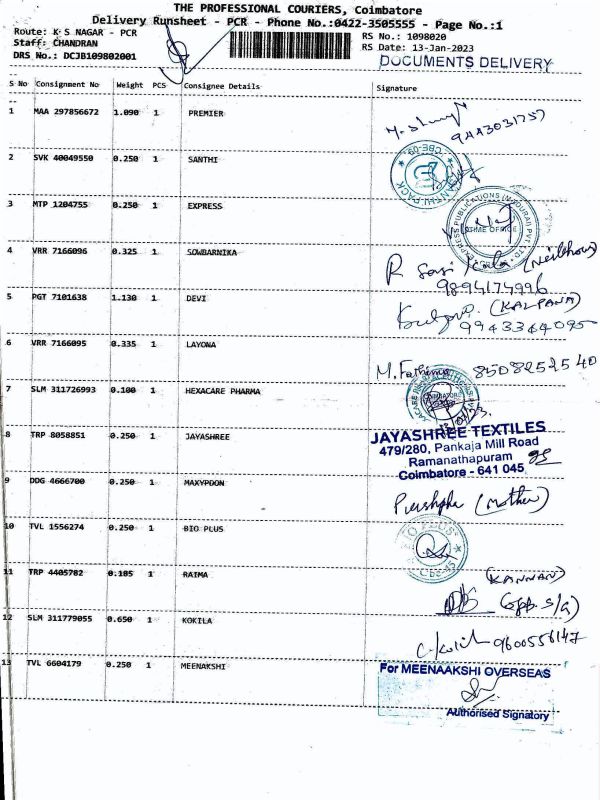 THE PROFESSIONAL COURIERS, Coimbatore
Delivery Runsheet - PCR - Phone No.:0422-3505555 - Page No.:1
Route: K S NAGAR - PCR
RS No.: 1098020
Staff: CHANDRAN
RS Date: 13-Jan-2023
DRS No.: DCJB109802001
DOCUMENTS DELIVERY
S No Consignment No Weight PCS Consignee Details Signature
1 MAA 297856672 1.090 1 PREMIER
9443031757
2 SVK 40049550 0.250 1 SANTHI
3 MTP 1204755 0.250 1 EXPRESS
TIME OFFICE
4 VRR 7166096 0.325 1 SOWBARNIKA
R Sasi kala (Neighbour)
9894174996
5 PGT 7101638 1.130 1 DEVI
(KALPANA)
9943344095
6 VRR 7166095 0.335 1 LAYONA
M. Fathima 8508252540
7 SLM 311726993 0.100 1 HEXACARE PHARMA
8 TRP 8058851 0.250 1 JAYASHREE
JAYASHREE TEXTILES
479/280, Pankaja Mill Road
Ramanathapuram
Coimbatore - 641 045
9 DDG 4666700 0.250 1 MAXYPDON
(Mother)
10 TVL 1556274 0.250 1 BIO PLUS
BIO PLUS
11 TRP 4405782 0.185 1 RAIMA
(KANNAN)
12 SLM 311779055 0.650 1 KOKILA
9600556147
13 TVL 6604179 0.250 1 MEENAKSHI
For MEENAAKSHI OVERSEAS
Authorised Signatory